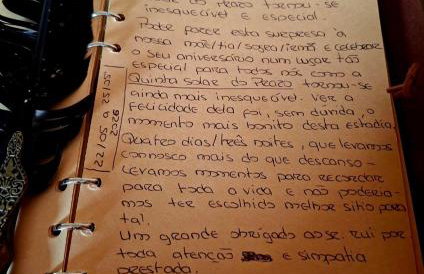 do Prazo tornou-se
inesquecível e especial.
Poder fazer esta surpresa à
nossa mãe/tia/sogra/irmã e celebrar
o seu aniversário num lugar tão
especial para todos nós como a
Quinta Solar do Prazo tornou-se
ainda mais inesquecível. Ver a
felicidade dela foi, sem dúvida, o
momento mais bonito desta estadia.
Quatro dias/três noites, que levamos
connosco mais do que descanso -
levamos momentos para recordar
para toda a vida e não podería-
mos ter escolhido melhor sítio para
tal.
Um grande obrigado ao sr. Rui por
toda atenção e simpatia
prestada.